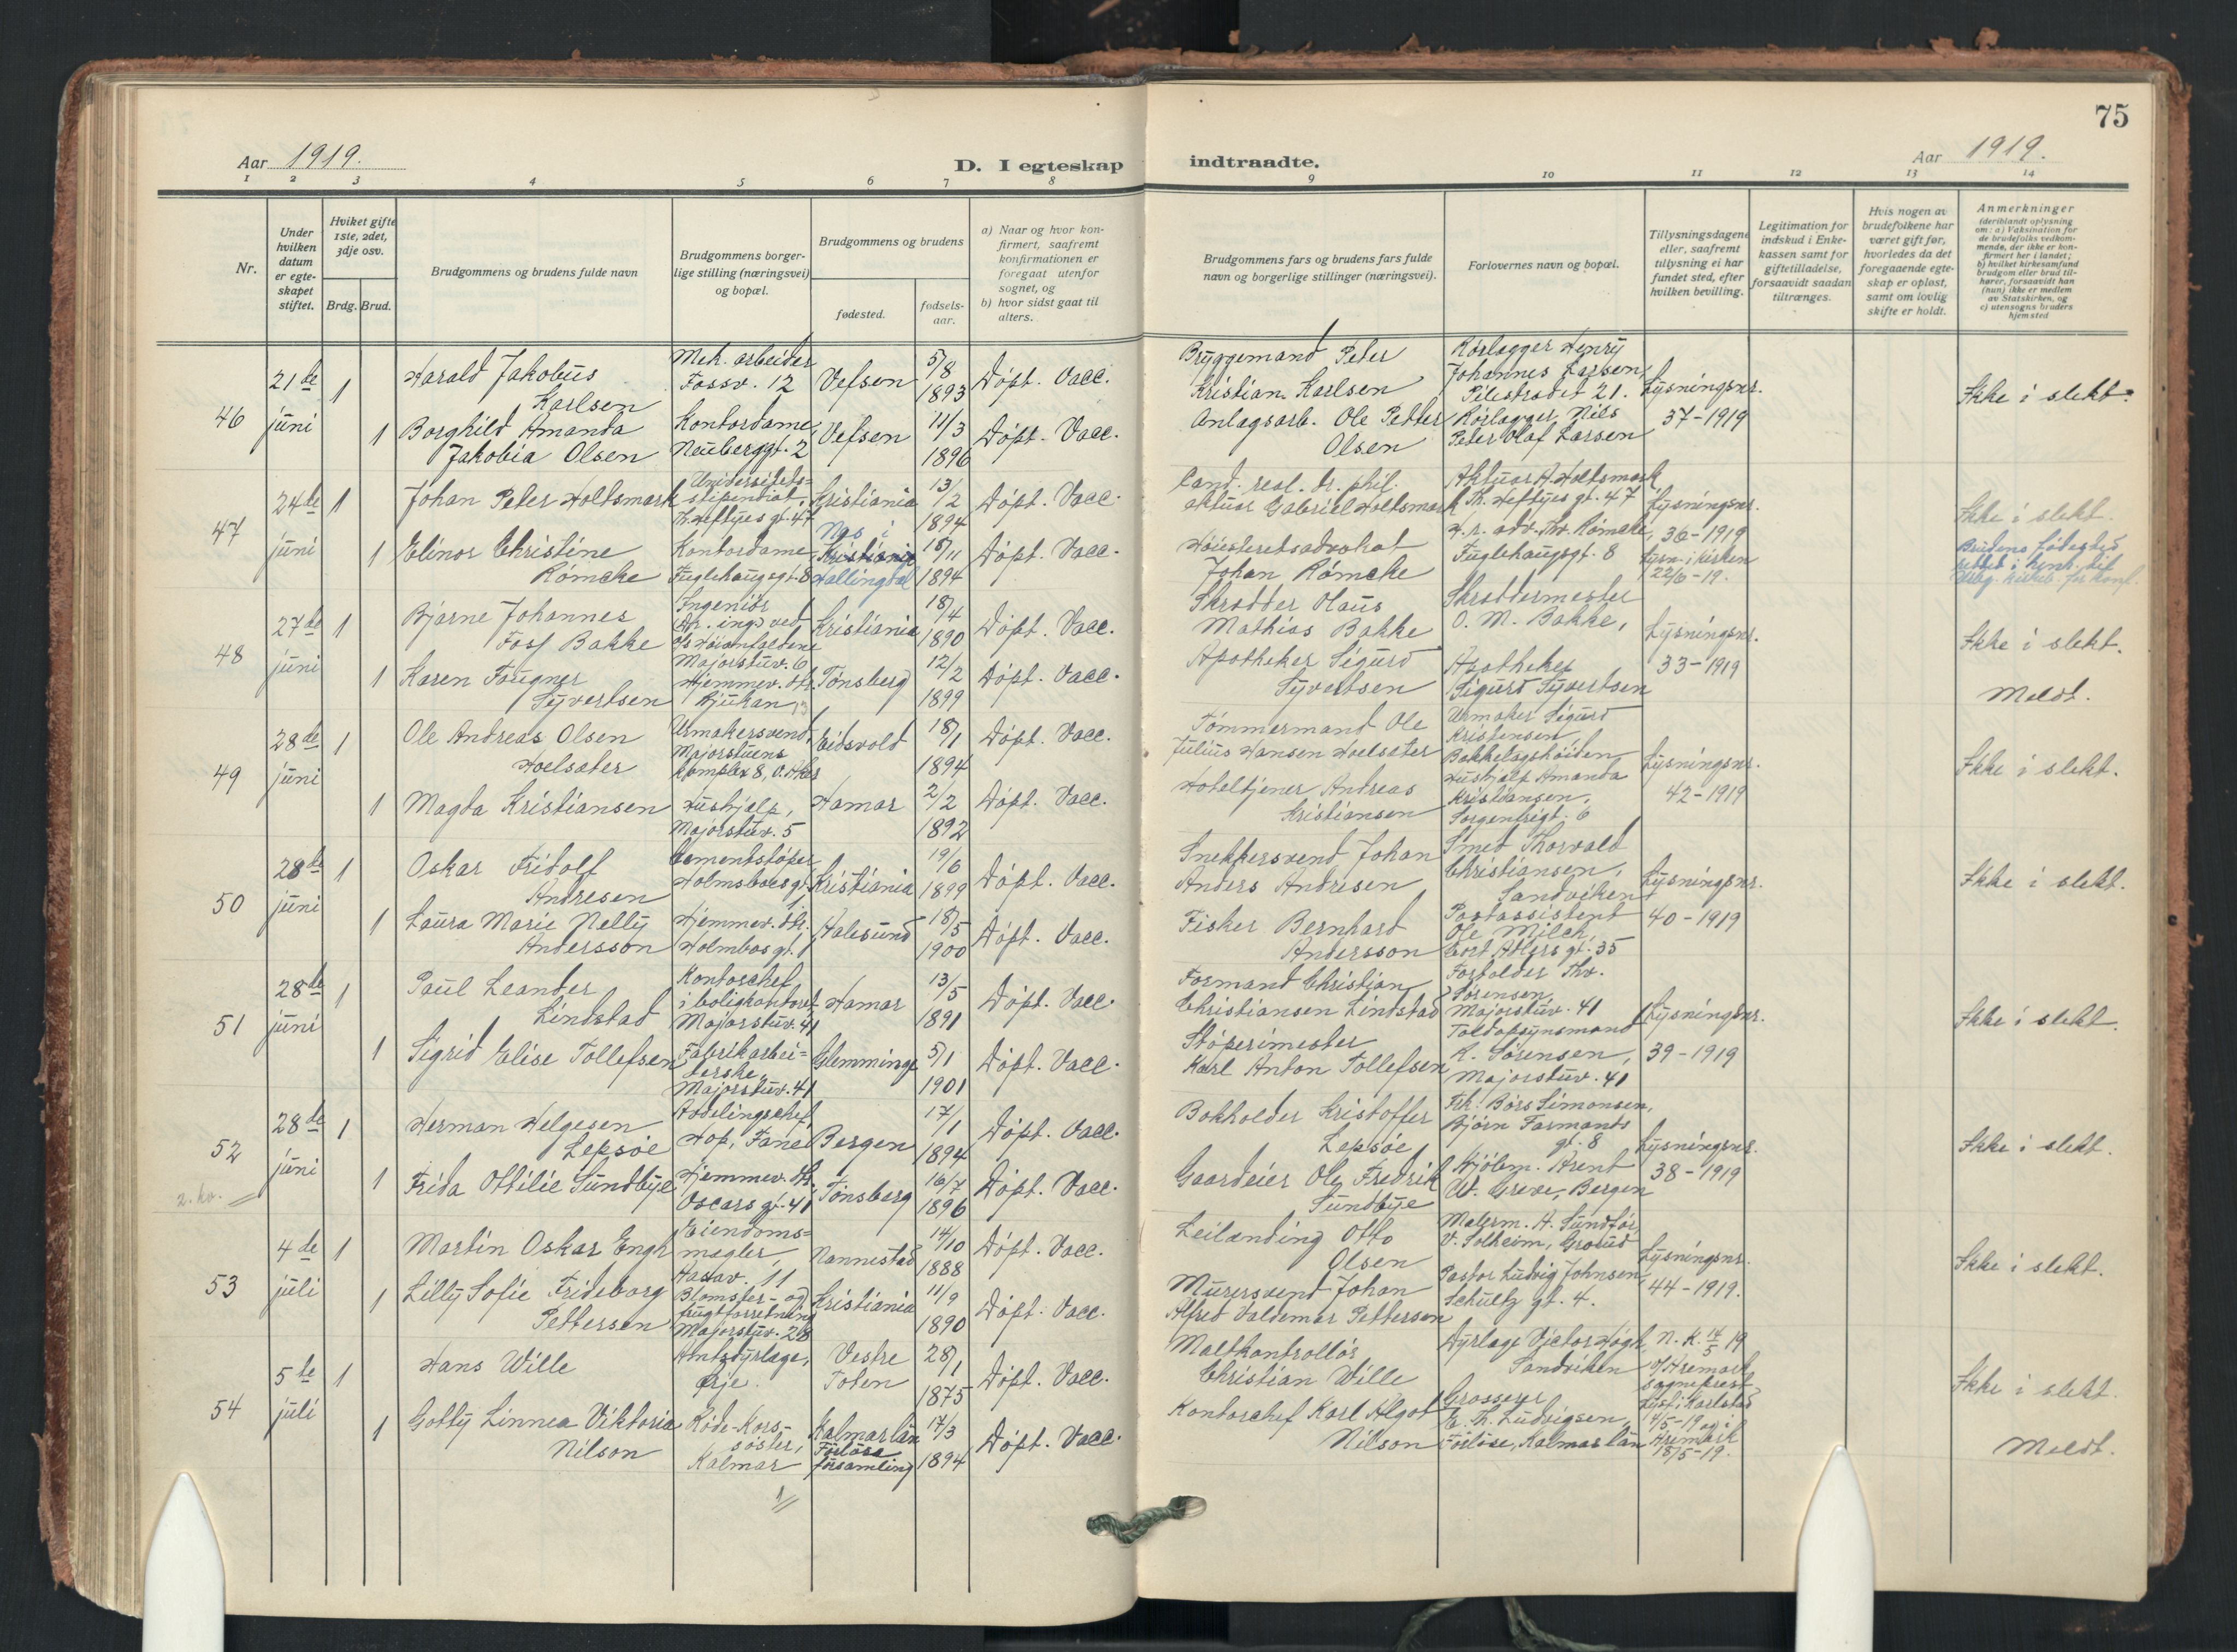 75
Aar 1919.
D. I egteskap indtraadte.
Aar 1919.
1 2 3 4 5 6 7 8 9 10 11 12 13 14
Nr.
Under hvilken datum er egteskapet stiftet.
Hviket gifte 1ste, 2det, 3dje osv.
Brdg. Brud.
Brudgommens og brudens fulde navn
Brudgommens borgerlige stilling (næringsvei) og bopæl.
Brudgommens og brudens
fødested.
fødselsaar.
a) Naar og hvor konfirmert, saafremt konfirmationen er foregaat utenfor sognet, og
b) hvor sidst gaat til alters.
Brudgommens fars og brudens fars fulde navn og borgerlige stillinger (næringsvei).
Forlovernes navn og bopæl.
Tillysningsdagene eller, saafremt tillysning ei har fundet sted, efter hvilken bevilling.
Legitimation for indskud i Enkekassen samt for giftetilladelse, forsaavidt saadan tiltrænges.
Hvis nogen av brudefolkene har været gift før, hvorledes da det foregaaende egteskap er opløst, samt om lovlig skifte er holdt.
Anmerkninger
(deriblandt oplysning om: a) Vaksination for de brudefolks vedkommende, der ikke er konfirmert her i landet; b) hvilket kirkesamfund brudgom eller brud tilhører, forsaavidt han (hun) ikke er medlem av Statskirken, og c) utensogns bruders hjemsted
46
21de juni
1
Harald Jakobus Karlsen
Mek. arbeider Fossv. 12
Vefsen
5/8 1893
Døpt. Vacc.
Bryggemand Peter Kristian Karlsen
Rørlægger Henry Johannes Larsen, Pilestrædet 21.
Lysningsnr. 37-1919
Ikke i slekt.
1
Borghild Amanda Jakobia Olsen
Kontordame, Neuberggt. 2
Vefsen
11/3 1896
Døpt. Vacc.
Anlægsarb. Ole Petter Olsen
Rørlægger Nils Peter Olaf Larsen
47
24de juni
1
Johan Peter Holtsmark
Universitetsstipendiat, Th. Heftyes gt. 47
Kristiania
13/2 1894
Døpt. Vacc.
Cand. real. dr. phil. aktuar Gabriel Holtsmark
Aktuar A. Holtsmark, Th. Heftyes gt. 47
Lysningsnr. 36-1919
Lysn. i kirken 22/6-19.
Ikke i slekt.
1
Elinor Christine Rømcke
Kontordame, Fuglehaugsgt. 8
Nes i Kristiania Hallingdal
18/11 1894
Døpt. Vacc.
Høiesteretsadvokat Johan Rømcke
H.r. adv. Thv. Rømcke, Fuglehaugsgt. 8
Brudens fødested rettet i henh. til
48
27de juni
1
Bjarne Johannes Foss Bakke
Ingeniør
Majorstuv. 6
Kristiania
18/4 1890
Døpt. Vacc.
Skrædder Olaus Mathias Bakke
Skræddermester O. M. Bakke,
Lysningsnr. 33-1919
Ikke i slekt.
1
Karen Fougner Syvertsen
Hjemmev. dtr. Rjukan
Tønsberg
12/2 1899
Døpt. Vacc.
Apotheker Sigurd Syvertsen
Apotheker Sigurd Syvertsen
Meldt.
49
28de juni
1
Ole Andreas Olsen Hoelsæter
Urmakersvend, Majorstuens komplex 8, V. Aker
Eidsvold
18/1 1894
Døpt. Vacc.
Tømmermand Ole Julius Hansen Hoelsæter
Urmaker Sigurd Kristensen, Bækkelagshøiden
Lysningsnr. 42-1919
Ikke i slekt.
1
Magda Kristiansen
Hushjælp, Majorstuv. 5
Hamar
2/2 1892
Døpt. Vacc.
Hoteltjener Andreas Kristiansen
Hushjælp Amanda Kristiansen, Sorgenfrigt. 6
50
28de juni
1
Oskar Fridolf Andresen
Cementstøper Holmboesgt. 1
Kristiania
19/6 1899
Døpt. Vacc.
Snekkersvend Johan Anders Andresen
Smed Thorvald Christiansen, Sandviken
Lysningsnr. 40-1919
Ikke i slekt.
1
Laura Marie Nelly Andersson
Hjemmev. dtr. Holmboesgt. 1
Aalesund
18/5 1900
Døpt. Vacc.
Fisker Bernhard Andersson
Postassistent Ole Milch, Cort Adlers gt. 35
51
28de juni
1
Paul Leander Lindstad
Kontorchef i boligkontoret, Majorstuv. 41
Hamar
13/5 1891
Døpt. Vacc.
Formand Christian Christiansen Lindstad
Forholder Thv. Sørensen, Majorstuv. 41
Lysningsnr. 39-1919
Ikke i slekt.
1
Sigrid Elise Tollefsen
Fabrikarbeiderske, Majorstuv. 41
Glemminge
5/1 1901
Døpt. Vacc.
Støperimester Karl Anton Tollefsen
Toldopsynsmand K. Sørensen, Majorstuv. 41
52
2. kv.
28de juni
1
Herman Helgesen Lepsøe
Avdelingschef, Hop, Fane
Bergen
17/1 1894
Døpt. Vacc.
Bokholder Kristoffer Lepsøe
Frk. Børs Simonsen, Bjørn Farmands gt. 8
Lysningsnr. 38-1919
Ikke i slekt.
1
Frida Ottilie Sundbye
Hjemmev. dtr. Oscars gt. 41
Tønsberg
16/7 1896
Døpt. Vacc.
Gaardeier Ole Fredrik Sundbye
Kjøbm. Arent W. Greve, Bergen
53
4de juli
1
Martin Oskar Engh
Eiendomsmægler, 11
Nannestad
14/10 1888
Døpt. Vacc.
Leilænding Otto Olsen
Malerm. H. Sundfør, V. Solheim, Grorud
Lysningsnr. 44-1919.
Ikke i slekt.
1
Lilly Sofie Frideborg Pettersen
Blomster- og frugtforretning Majorstuv. 28
Kristiania
11/9 1890
Døpt. Vacc.
Murersvend Johan Alfred Valdemar Pettersen
Pastor Ludvig Johnsen, Schultz gt. 4.
54
5te juli
1
Hans Wille
Amtsdyrlæge, Ørje.
Vestre Toten
28/1 1875
Døpt. Vacc.
Maltkontrollør Christian Wille
Dyrlæge Victor Høgh, Sandviken
N. K. 14/5 19 Aremark sogneprest
Ikke i slekt.
1
Gotty Linnea Viktoria Nilson
Røde-Korssøster, Kalmar
Kalmar län Förlösa församling
17/3 1894
Døpt. Vacc.
Kontorchef Karl Algot Nilson
Grosserer E. Th. Ludvigsen, Förlösa, Kalmar län
Lyst i Karlstad 4/5-19 og i Aremark 18/5-19.
Meldt.